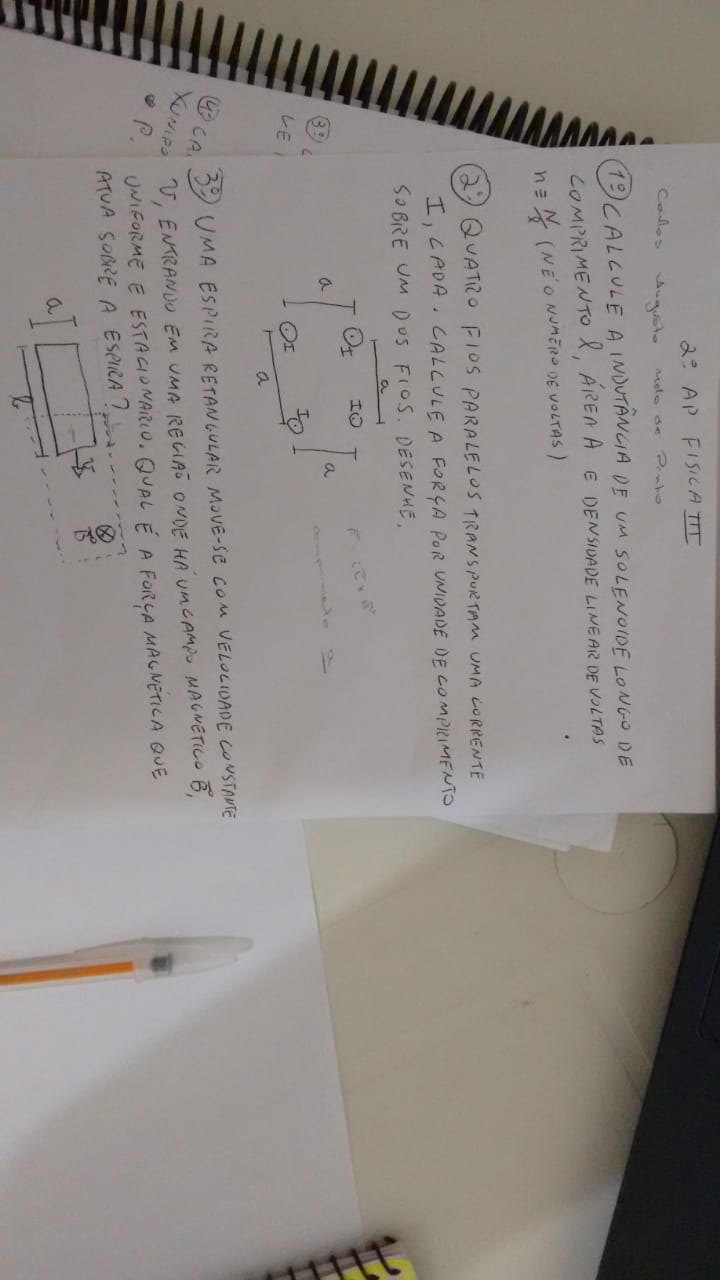 2º AP FISICA III
Carlos Augusto Melo de Pinto
1º CALCULE A INDUTÂNCIA DE UM SOLENOIDE LONGO DE
COMPRIMENTO l, ÁREA A E DENSIDADE LINEAR DE VOLTAS
n ≡ N/l (N É O NUMERO DE VOLTAS)
2º QUATRO FIOS PARALELOS TRANSPORTAM UMA CORRENTE
I, CADA. CALCULE A FORÇA POR UNIDADE DE COMPRIMENTO
SOBRE UM DOS FIOS. DESENHE.
a
I I
a a
I I
a
comprimento a
3º UMA ESPIRA RETANGULAR MOVE-SE COM VELOCIDADE CONSTANTE
V, ENTRANDO EM UMA REGIÃO ONDE HÁ UM CAMPO MAGNETICO B⃗,
UNIFORME E ESTACIONÁRIO. QUAL É A FORÇA MAGNÉTICA QUE
ATUA SOBRE A ESPIRA?
a
V
B⃗
b
3º
LE
4º CA
UNIFO
P.